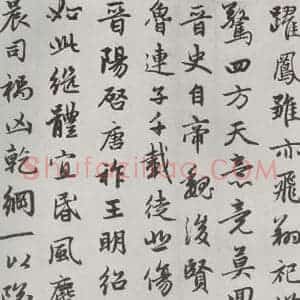 躍鳳雛亦飛翔祀
驚四方天意竟莫回
晉史自帝魏後賢
魯連子千載徒悲傷
晉陽啓唐祚王明紹
如此繼體宜昏風麀
晨司禍凶乾綱一以墜